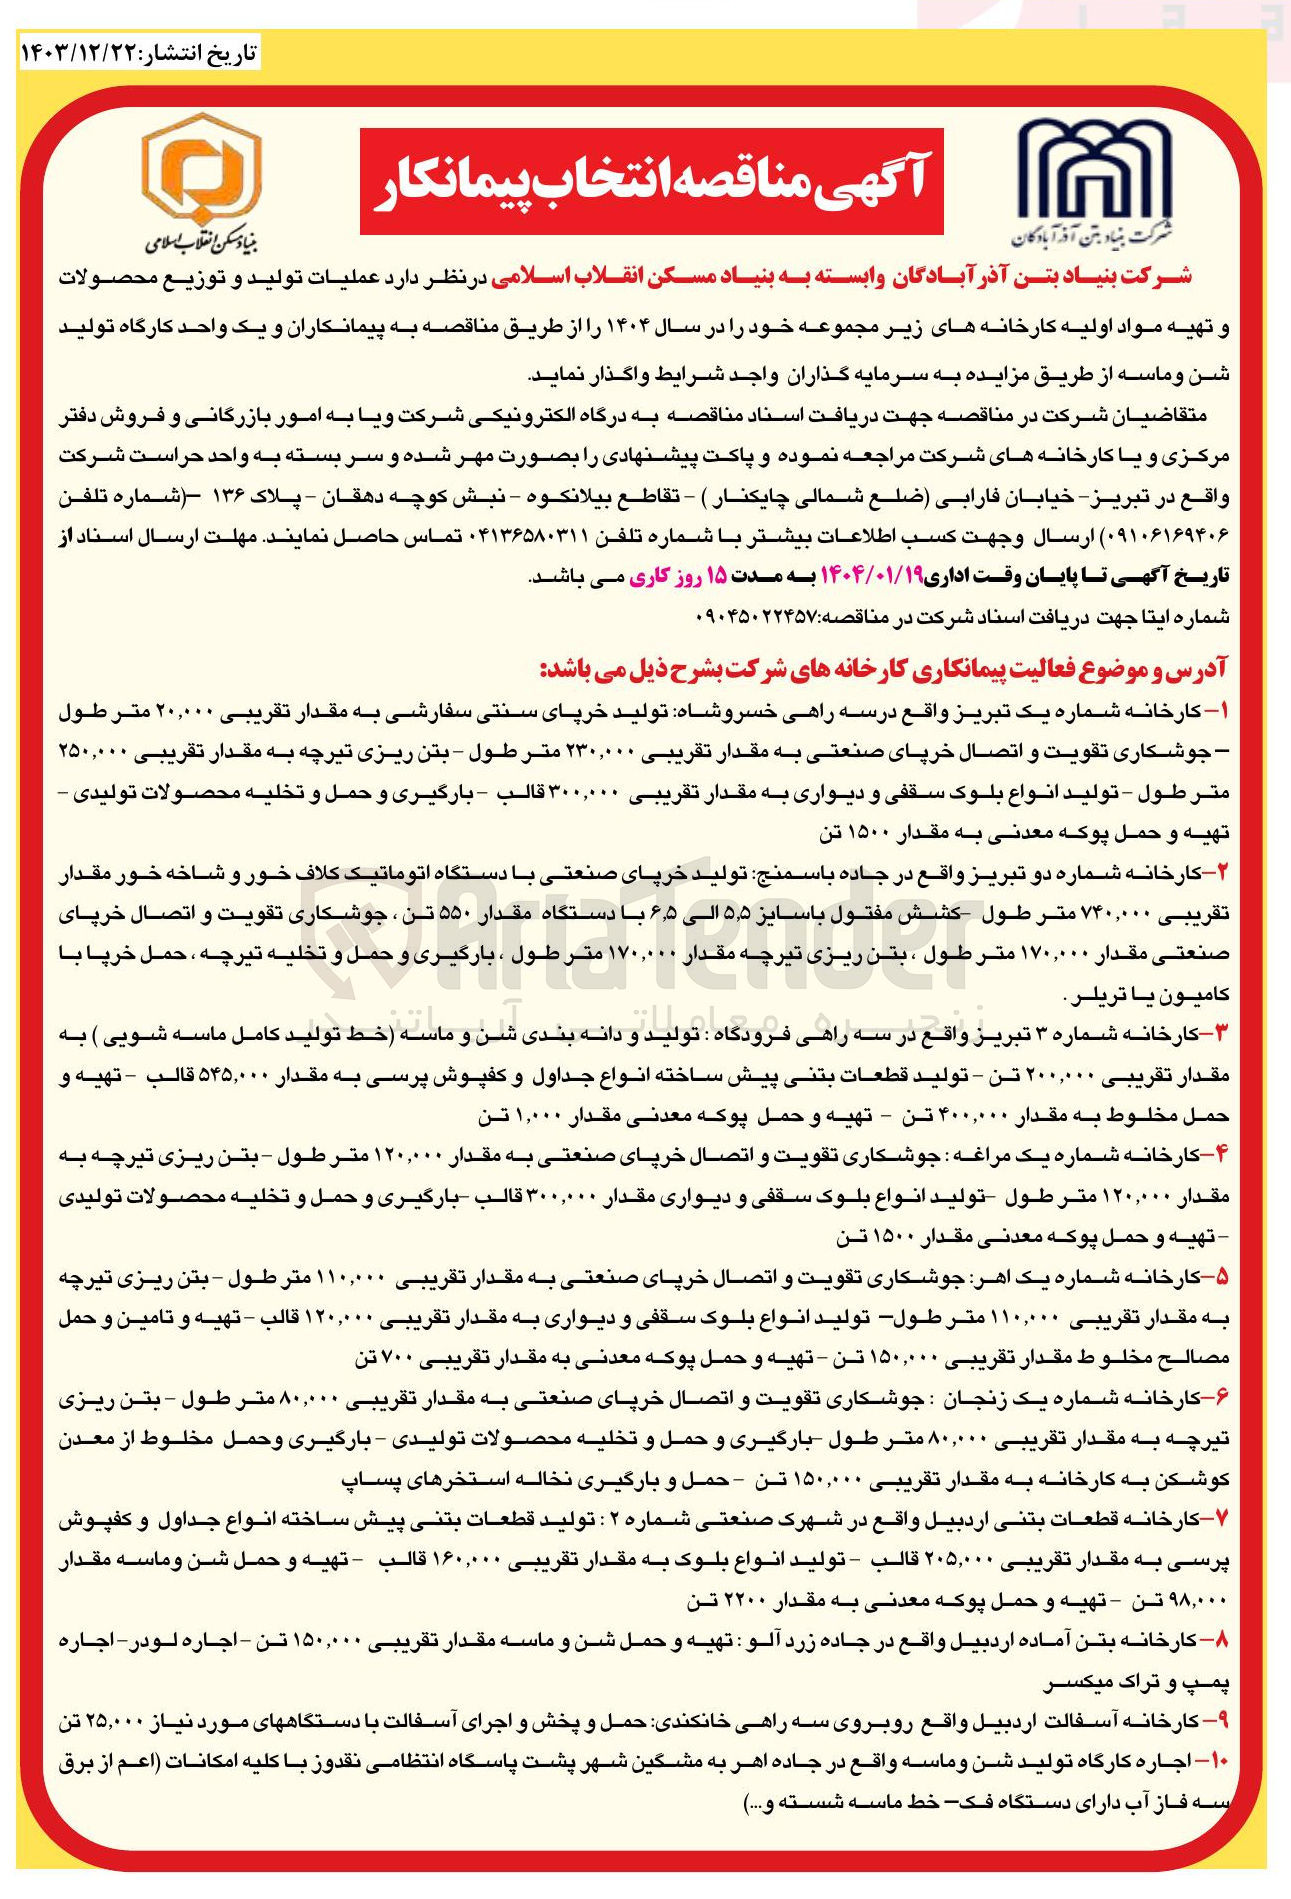 تاریخ انتشار:۱۴۰۳/۱۲/۲۲
شرکت بنیاد بتن آذرآبادگان
آگهی مناقصه انتخاب پیمانکار
بنیاد مسکن انقلاب اسلامی
شرکت بنیاد بتن آذرآبادگان وابسته به بنیاد مسکن انقلاب اسلامی درنظر دارد عملیات تولید و توزیع محصولات
و تهیه مواد اولیه کارخانه های زیر مجموعه خود را در سال ۱۴۰۴ را از طریق مناقصه به پیمانکاران و یک واحد کارگاه تولید
شن وماسه از طریق مزایده به سرمایه گذاران واجد شرایط واگذار نماید.
متقاضیان شرکت در مناقصه جهت دریافت اسناد مناقصه به درگاه الکترونیکی شرکت ویا به امور بازرگانی و فروش دفتر
مرکزی و یا کارخانه های شرکت مراجعه نموده و پاکت پیشنهادی را بصورت مهر شده و سر بسته به واحد حراست شرکت
واقع در تبریز- خیابان فارابی (ضلع شمالی چایکنار ) - تقاطع بیلانکوه - نبش کوچه دهقان - پلاک ۱۳۶ -(شماره تلفن
۰۹۱۰۶۱۶۹۴۰۶) ارسال وجهت کسب اطلاعات بیشتر با شماره تلفن ۰۴۱۳۶۵۸۰۳۱۱ تماس حاصل نمایند. مهلت ارسال اسناد از
تاریخ آگهی تا پایان وقت اداری۱۴۰۴/۰۱/۱۹ به مدت ۱۵ روز کاری می باشد.
شماره ایتا جهت دریافت اسناد شرکت در مناقصه:۰۹۰۴۵۰۲۲۴۵۷
آدرس و موضوع فعالیت پیمانکاری کارخانه های شرکت بشرح ذیل می باشد:
۱- کارخانه شماره یک تبریز واقع درسه راهی خسروشاه: تولید خرپای سنتی سفارشی به مقدار تقریبی ۲۰,۰۰۰ متر طول
-جوشکاری تقویت و اتصال خرپای صنعتی به مقدار تقریبی ۲۳۰,۰۰۰ متر طول -بتن ریزی تیرچه به مقدار تقریبی ۲۵۰,۰۰۰
متر طول -تولید انواع بلوک سقفی و دیواری به مقدار تقریبی ۳۰۰,۰۰۰ قالب -بارگیری و حمل و تخلیه محصولات تولیدی -
تهیه و حمل پوکه معدنی به مقدار ۱۵۰۰ تن
۲-کارخانه شماره دو تبریز واقع در جاده باسمنج: تولید خرپای صنعتی با دستگاه اتوماتیک کلاف خور و شاخه خور مقدار
تقریبی ۷۴۰,۰۰۰ متر طول -کشش مفتول باسایز ۵,۵ الی ۶,۵ با دستگاه مقدار ۵۵۰ تن ، جوشکاری تقویت و اتصال خرپای
صنعتی مقدار ۱۷۰,۰۰۰ متر طول ، بتن ریزی تیرچه مقدار ۱۷۰,۰۰۰ متر طول ، بارگیری و حمل و تخلیه تیرچه ، حمل خرپا با
کامیون یا تریلر .
ArianTender
زنجیره معاملاتی آریاتندر
۳-کارخانه شماره ۳ تبریز واقع در سه راهی فرودگاه : تولید و دانه بندی شن و ماسه (خط تولید کامل ماسه شویی ) به
مقدار تقریبی ۲۰۰,۰۰۰ تن - تولید قطعات بتنی پیش ساخته انواع جداول و کفپوش پرسی به مقدار ۵۴۵,۰۰۰ قالب -تهیه و
حمل مخلوط به مقدار ۴۰۰,۰۰۰ تن - تهیه و حمل پوکه معدنی مقدار ۱,۰۰۰ تن
۴-کارخانه شماره یک مراغه : جوشکاری تقویت و اتصال خرپای صنعتی به مقدار ۱۲۰,۰۰۰ متر طول -بتن ریزی تیرچه به
مقدار ۱۲۰,۰۰۰ متر طول -تولید انواع بلوک سقفی و دیواری مقدار ۳۰۰,۰۰۰ قالب -بارگیری و حمل و تخلیه محصولات تولیدی
-تهیه و حمل پوکه معدنی مقدار ۱۵۰۰ تن
۵-کارخانه شماره یک اهر: جوشکاری تقویت و اتصال خرپای صنعتی به مقدار تقریبی ۱۱۰,۰۰۰ متر طول -بتن ریزی تیرچه
به مقدار تقریبی ۱۱۰,۰۰۰ متر طول- تولید انواع بلوک سقفی و دیواری به مقدار تقریبی ۱۲۰,۰۰۰ قالب -تهیه و تامین و حمل
مصالح مخلو ط مقدار تقریبی ۱۵۰,۰۰۰ تن -تهیه و حمل پوکه معدنی به مقدار تقریبی ۷۰۰ تن
۶-کارخانه شماره یک زنجان : جوشکاری تقویت و اتصال خرپای صنعتی به مقدار تقریبی ۸۰,۰۰۰ متر طول -بتن ریزی
تیرچه به مقدار تقریبی ۸۰,۰۰۰ متر طول -بارگیری و حمل و تخلیه محصولات تولیدی -بارگیری وحمل مخلوط از معدن
کوشکن به کارخانه به مقدار تقریبی ۱۵۰,۰۰۰ تن -حمل و بارگیری نخاله استخرهای پساپ
۷-کارخانه قطعات بتنی اردبیل واقع در شهرک صنعتی شماره ۲ : تولید قطعات بتنی پیش ساخته انواع جداول و کفپوش
پرسی به مقدار تقریبی ۲۰۵,۰۰۰ قالب -تولید انواع بلوک به مقدار تقریبی ۱۶۰,۰۰۰ قالب -تهیه و حمل شن وماسه مقدار
۹۸,۰۰۰ تن -تهیه و حمل پوکه معدنی به مقدار ۲۲۰۰ تن
۸- کارخانه بتن آماده اردبیل واقع در جاده زرد آلو : تهیه و حمل شن و ماسه مقدار تقریبی ۱۵۰,۰۰۰ تن -اجاره لودر-اجاره
پمپ و تراک میکسر
۹- کارخانه آسفالت اردبیل واقع روبروی سه راهی خانکندی: حمل و پخش و اجرای آسفالت با دستگاههای مورد نیاز ۲۵,۰۰۰ تن
۱۰- اجاره کارگاه تولید شن وماسه واقع در جاده اهر به مشگین شهر پشت پاسگاه انتظامی نقدوز با کلیه امکانات (اعم از برق
سه فاز آب دارای دستگاه فک- خط ماسه شسته و...)